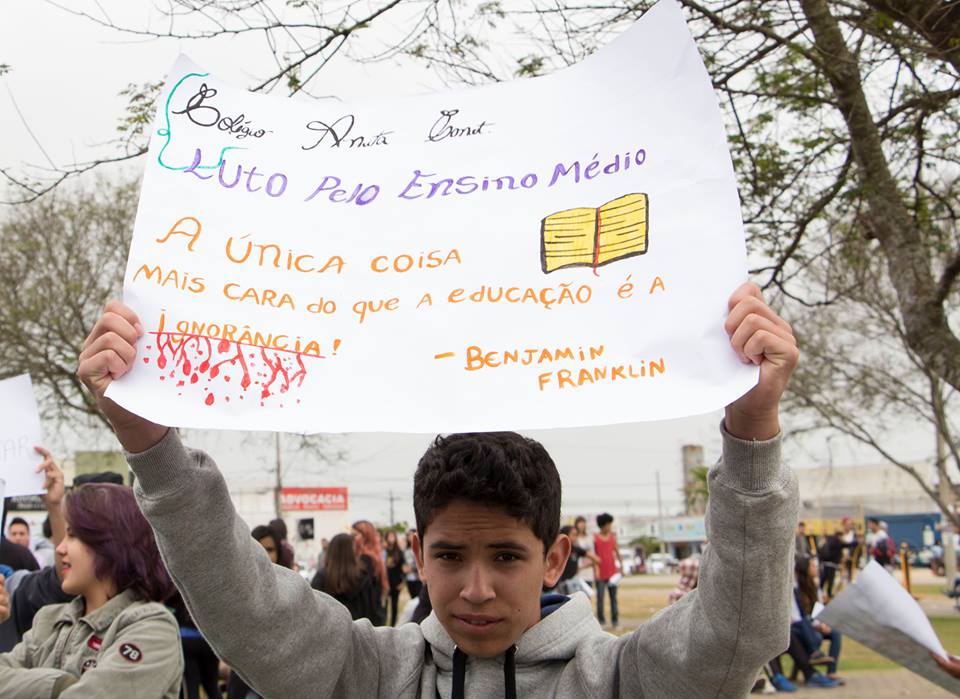 Colégio Anita
LUTO PELO ENSINO MÉDIO
A ÚNICA COISA
MAIS CARA DO QUE A EDUCAÇÃO É A
IGNORÂNCIA!
- BENJAMIN
FRANKLIN
ADVOCACIA
78